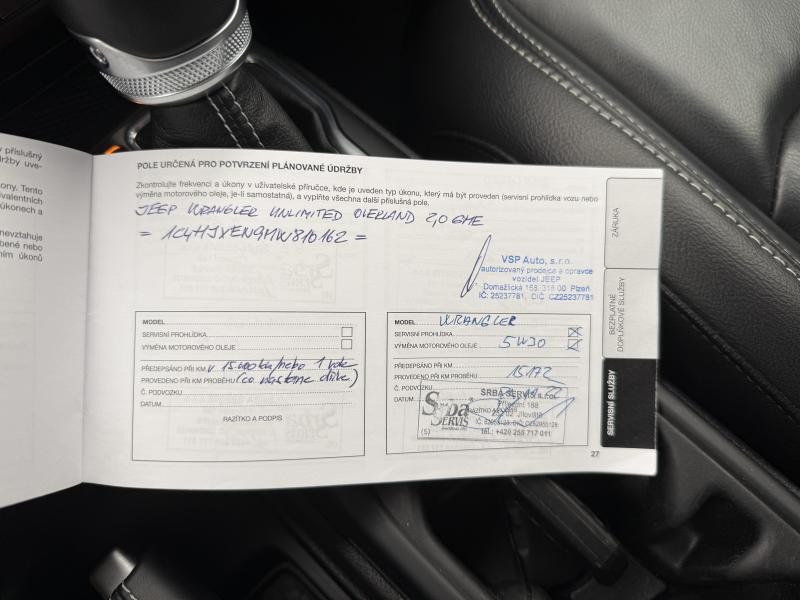 y příslušný
držby uve-
ony. Tento
valentních
úkonech a
nevztahuje
bené nebo
ním úkonů
POLE URČENÁ PRO POTVRZENÍ PLÁNOVANÉ ÚDRŽBY
Zkontrolujte frekvenci a úkony v uživatelské příručce, kde je uveden typ úkonu, který má být proveden (servisní prohlídka vozu nebo
výměna motorového oleje, je-li samostatná), a vyplňte všechna další příslušná pole.
JEEP WRANGLER UNLIMITED OVERLAND 2,0 GME
= 1C4HJXEN9MW810162 =
VSP Auto, s.r.o.
autorizovaný prodejce a opravce
vozidel JEEP
Domažlická 168, 318 00 Plzeň
IČ: 25237781, DIČ CZ25237781
MODEL
SERVISNÍ PROHLÍDKA
VÝMĚNA MOTOROVÉHO OLEJE
PŘEDEPSÁNO PŘI KM V 15.000 km/nebo 1 rok
PROVEDENO PŘI KM PROBĚHU (co nastane dříve)
Č. PODVOZKU
DATUM
RAZÍTKO A PODPIS
MODEL WRANGLER
SERVISNÍ PROHLÍDKA
VÝMĚNA MOTOROVÉHO OLEJE 5W30
PŘEDEPSÁNO PŘI KM
PROVEDENO PŘI KM PROBĚHU 15172
Č. PODVOZKU
DATUM
SRBA SERVIS s.r.o.
Srba
SERVIS
188
02 Jílové
tel.: +420 255 717 011
(5)
27
ZÁRUKA
BEZPLATNÉ
DOPLŇKOVÉ SLUŽBY
SERVISNÍ SLUŽBY